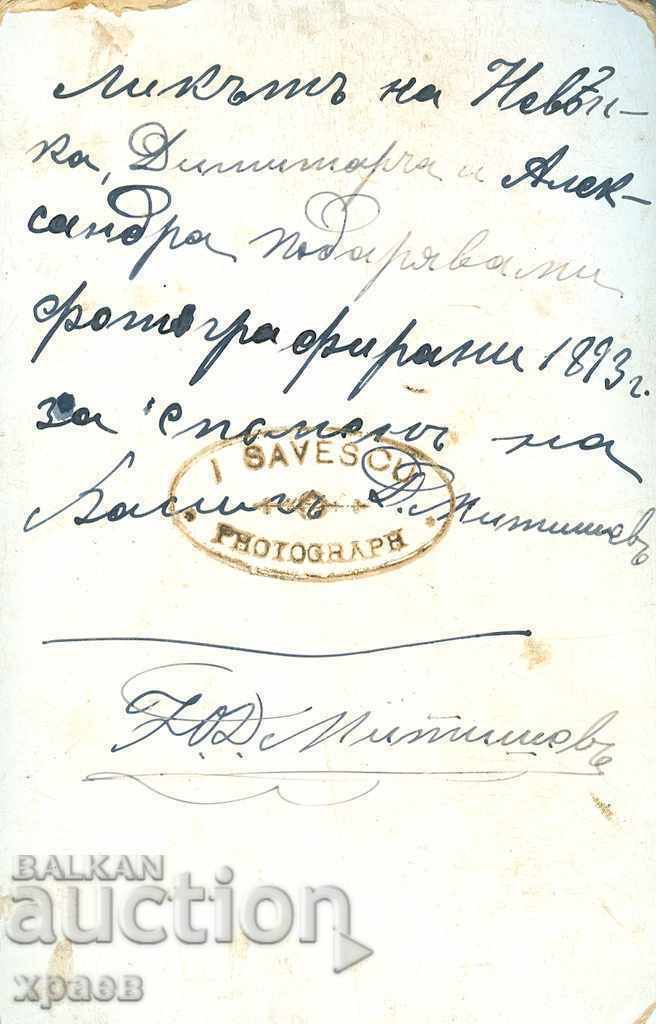 Ликътъ на Невѣн-
ка, Димитарча и Алек-
сандра подарявами
фотографирани 1893 г.
за споменъ на
Василъ Д. Митишевъ
I SAVESCU
PHOTOGRAPH
Ю. Д. Митишевъ
BALKAN
auction
храев